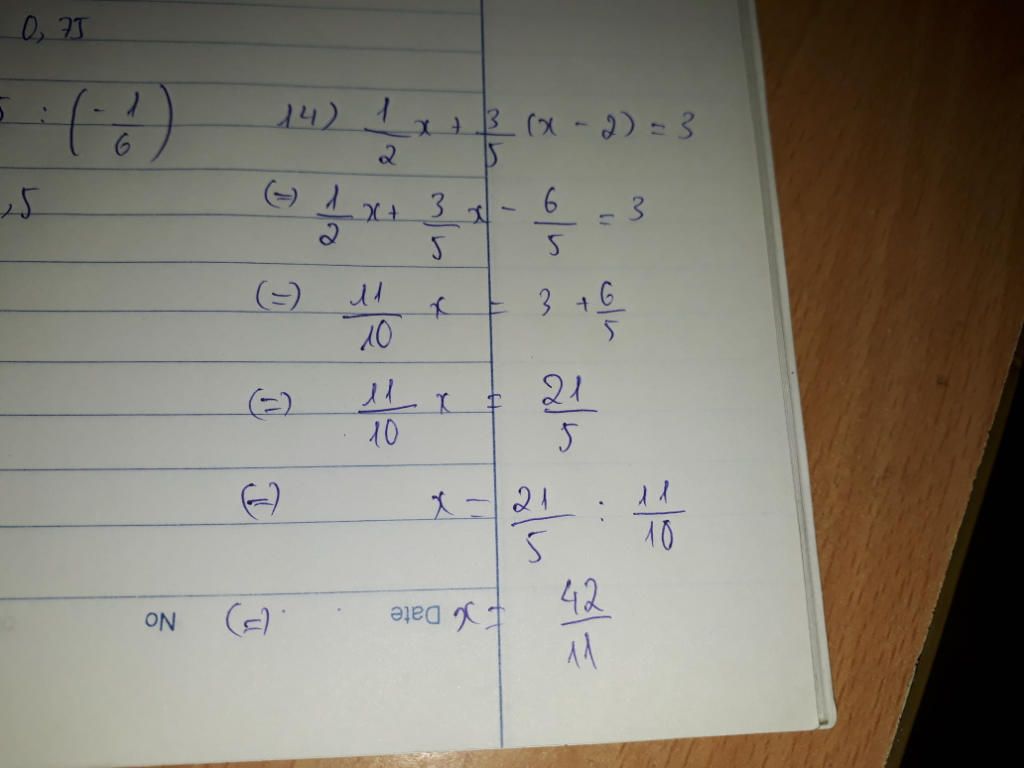 0,75
: (-1/6)
,5
14) 1/2 x + 3/5 (x - 2) = 3
(=) 1/2 x + 3/5 x - 6/5 = 3
(=) 11/10 x = 3 + 6/5
(=) 11/10 x = 21/5
(=) x = 21/5 : 11/10
(=) x = 42/11
No Date